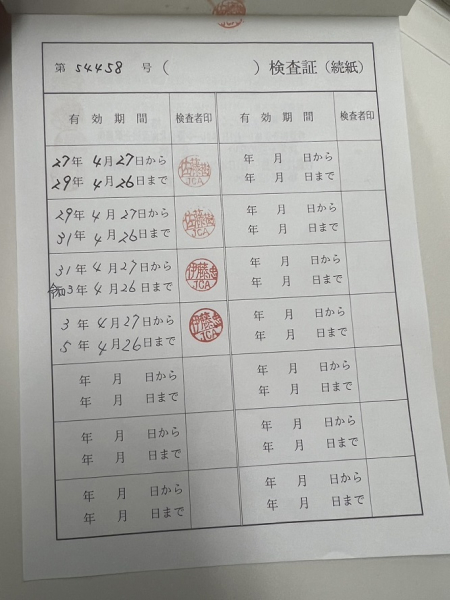 第 54458 号 ( ) 検査証 (続紙)
有効期間 検査者印 有効期間 検査者印
27年 4月27日から
29年 4月26日まで
佐藤
年 月 日から
年 月 日まで
29年 4月27日から
31年 4月26日まで
佐藤
JCA
年 月 日から
年 月 日まで
31年 4月27日から
令和3年 4月26日まで
伊藤
JCA
年 月 日から
年 月 日まで
3年 4月27日から
5年 4月26日まで
伊藤
JCA
年 月 日から
年 月 日まで
年 月 日から
年 月 日まで
年 月 日から
年 月 日まで
年 月 日から
年 月 日まで
年 月 日から
年 月 日まで
年 月 日から
年 月 日まで
年 月 日から
年 月 日まで